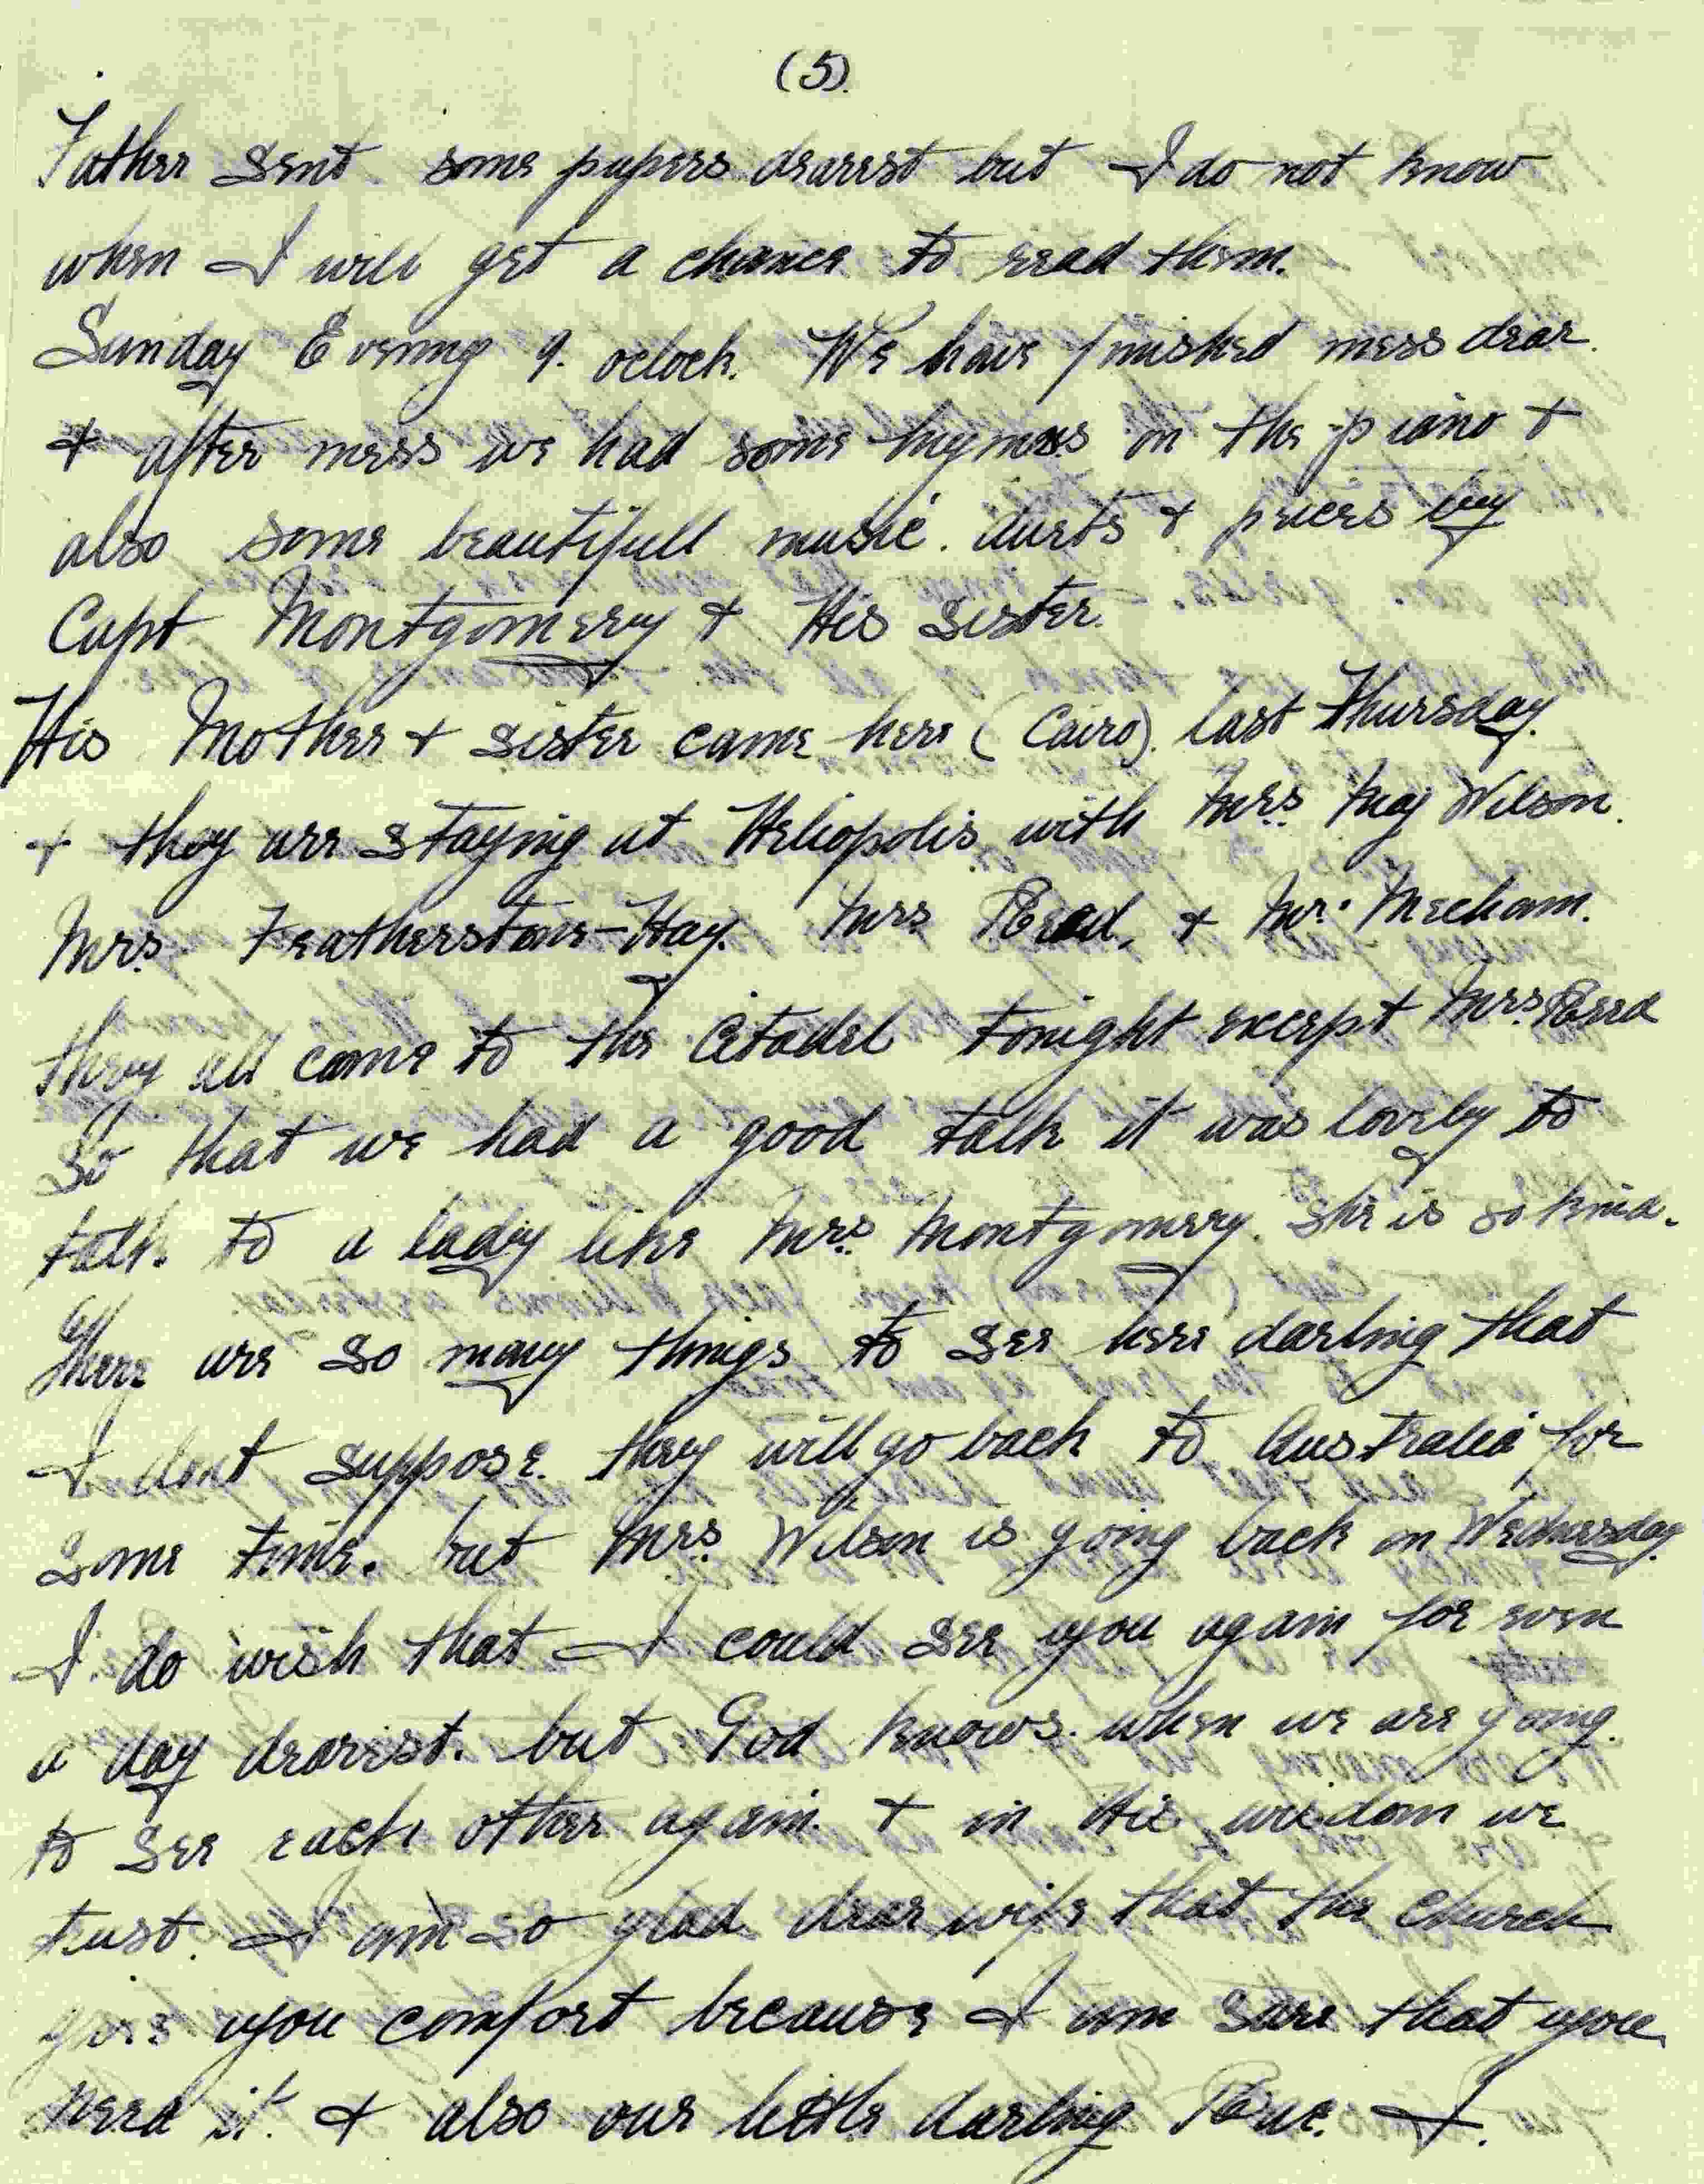 (5).
Father sent some papers dearest but I do not know
when I will get a chance to read them.
Sunday Evening 9. oclock. We have finished mess dear.
+ after mess we had some hymns on the piano +
also some beautifull music. duets + pieces by
Capt Montgomery + His sister.
His Mother + sister came here (Cairo). last Thursday.
+ they are staying at Heliopolis with Mrs. Maj Wilson.
Mrs. Featherstone-Hay. Mrs Read. + Mr. Mecham.
they all came to the Citadel tonight except Mrs. Read
So that we had a good talk it was lovely to
talk to a lady like Mrs. Montgomery. she is so kind.
There are so many things to see here darling that
I dont suppose they will go back to Australia for
some time. but Mrs. Wilson is going back on Wednesday.
I do wish that I could see you again for even
a day dearest. but God knows when we are going.
to see each other again. + in His wisdom we
trust. I am so glad dear wife that the church
gives you comfort because I am sure that you
need it. + also our little darling I.